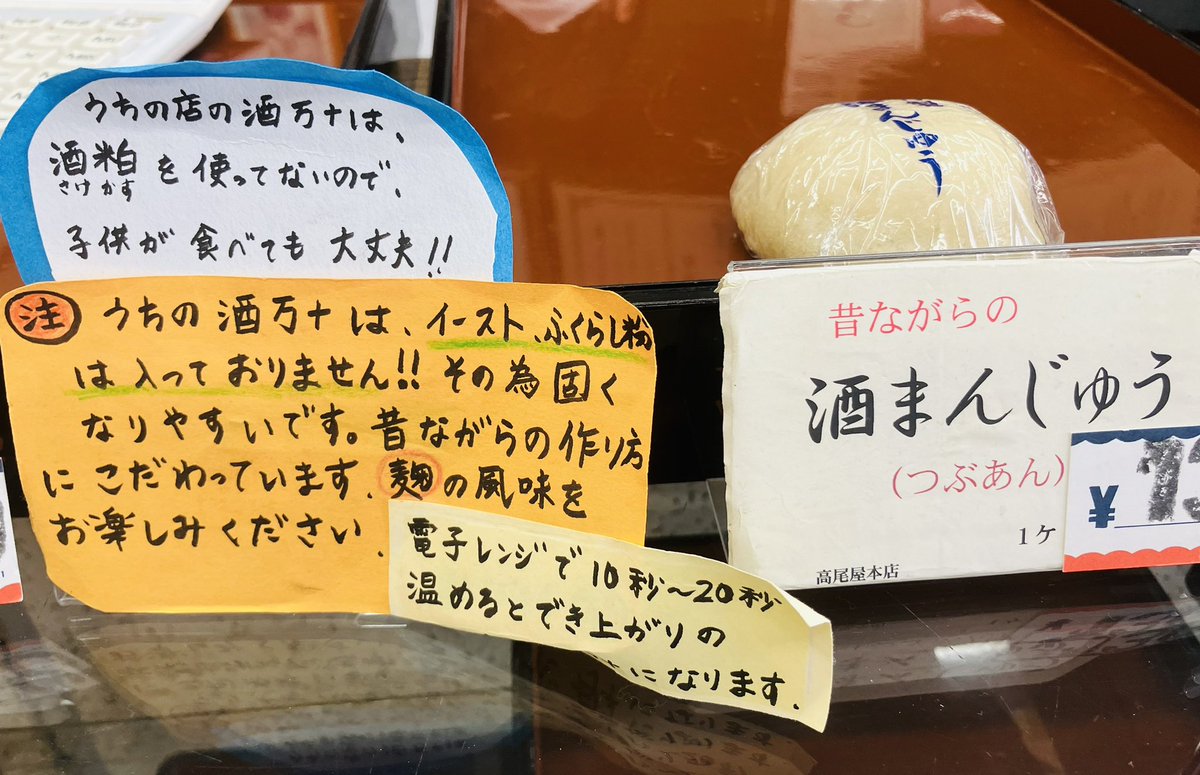 うちの店の酒万十は、
酒粕を使ってないので、
さけかす
子供が食べても大丈夫!!
注 うちの酒万十は、イースト、ふくらし粉
は入っておりません!! その為固く
なりやすいです。昔ながらの作り方
にこだわっています。麹の風味を
お楽しみください。
電子レンジで10秒〜20秒
温めるとでき上がりの
になります。
んじゅう
昔ながらの
酒まんじゅう
(つぶあん)
1ケ
¥
高尾屋本店